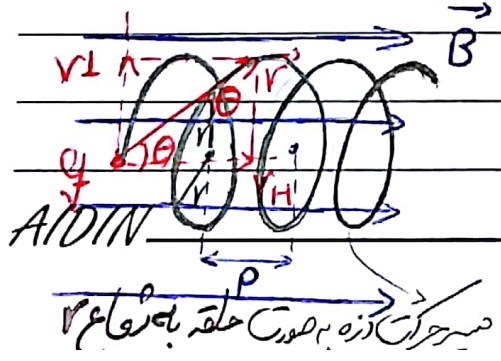 B
V⊥ V
θ
θ r
q V_H
r
AIDIN
P
مسیر حرکت ذره به صورت حلقه به شعاع r